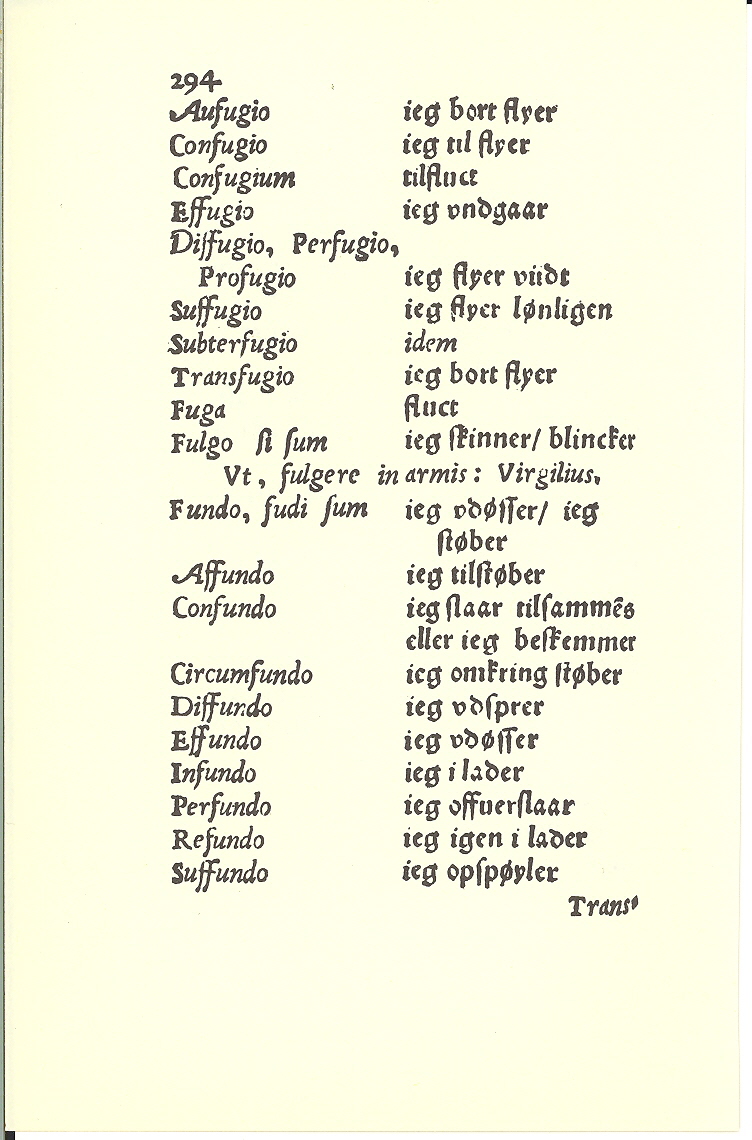 294
Aufugio ieg bort flyer
Confugio ieg til flyer
Confugium tilfluct
Effugio ieg vndgaar
Diffugio, Perfugio,
Profugio ieg flyer viidt
Suffugio ieg flyer lønligen
Subterfugio idem
Transfugio ieg bort flyer
Fuga fluct
Fulgo ſi ſum ieg ſkinner/ blincker
Vt, fulgere in armis: Virgilius,
Fundo, fudi ſum ieg vdøſſer/ ieg
ſtøber
Affundo ieg tilſtøber
Confundo ieg ſlaar tilſammẽs
eller ieg beſkemmer
Circumfundo ieg omkring ſtøber
Diffundo ieg vdſprer
Effundo ieg vdøſſer
Infundo ieg i lader
Perfundo ieg offuerſlaar
Refundo ieg igen i lader
Suffundo ieg opſpøyler
Trans-